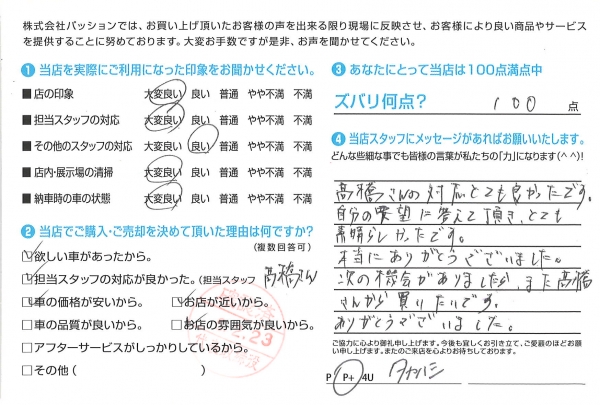 株式会社パッションでは、お買い上げ頂いたお客様の声を出来る限り現場に反映させ、お客様により良い商品やサービス
を提供することに努めております。大変お手数ですが是非、お声を聞かせてください。
❶ 当店を実際にご利用になった印象をお聞かせください。
■店の印象 大変良い 良い 普通 やや不満 不満
■担当スタッフの対応 大変良い 良い 普通 やや不満 不満
■その他のスタッフの対応 大変良い 良い 普通 やや不満 不満
■店内・展示場の清掃 大変良い 良い 普通 やや不満 不満
■納車時の車の状態 大変良い 良い 普通 やや不満 不満
❷ 当店でご購入・ご売却を決めて頂いた理由は何ですか?
(複数回答可)
☑欲しい車があったから。
☑担当スタッフの対応が良かった。(担当スタッフ 高橋さん)
☑車の価格が安いから。 ☑お店が近いから。
□車の品質が良いから。 ☑お店の雰囲気が良いから。
□アフターサービスがしっかりしているから。
□その他( )
23
❸ あなたにとって当店は100点満点中
ズバリ何点? 100 点
❹ 当店スタッフにメッセージがあればお願いいたします。
どんな些細な事でも皆様の言葉が私たちの「力」になります(^ ^)!
高橋さんの対応とても良かったです。
自分の要望に答えて頂き、とても
素晴らしかったです。
本当にありがとうございました。
次の機会がありましたら、また高橋
さんから買いたいです。
ありがとうございました。
ご協力に心より御礼申し上げます。今後も宜しくお引き立て、ご愛顧のほどお願
い申し上げます。またのご来店を心よりお待ちしております。
P P+ 4U